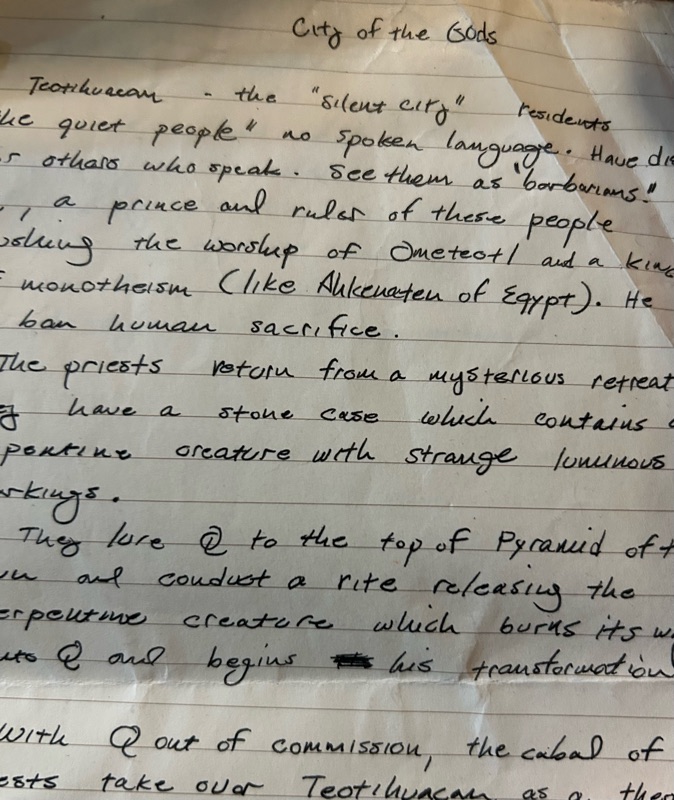 City of the Gods
Teotihuacan - the "silent city" residents
he quiet people" no spoken language. Have dis
r others who speak. See them as "barbarians."
, a prince and ruler of these people
oshing the worship of Ometeotl and a kind
f monotheism (like Ahkenaten of Egypt). He
ban human sacrifice.
The priests return from a mysterious retreat
y have a stone case which contains
pentine creature with strange luminous
rkings.
They lure Q to the top of Pyramid of t
un and conduct a rite releasing the
erpentine creature which burns its w
nto Q and begins his transformation
With Q out of commission, the cabal of
ests take over Teotihuacan as a theo